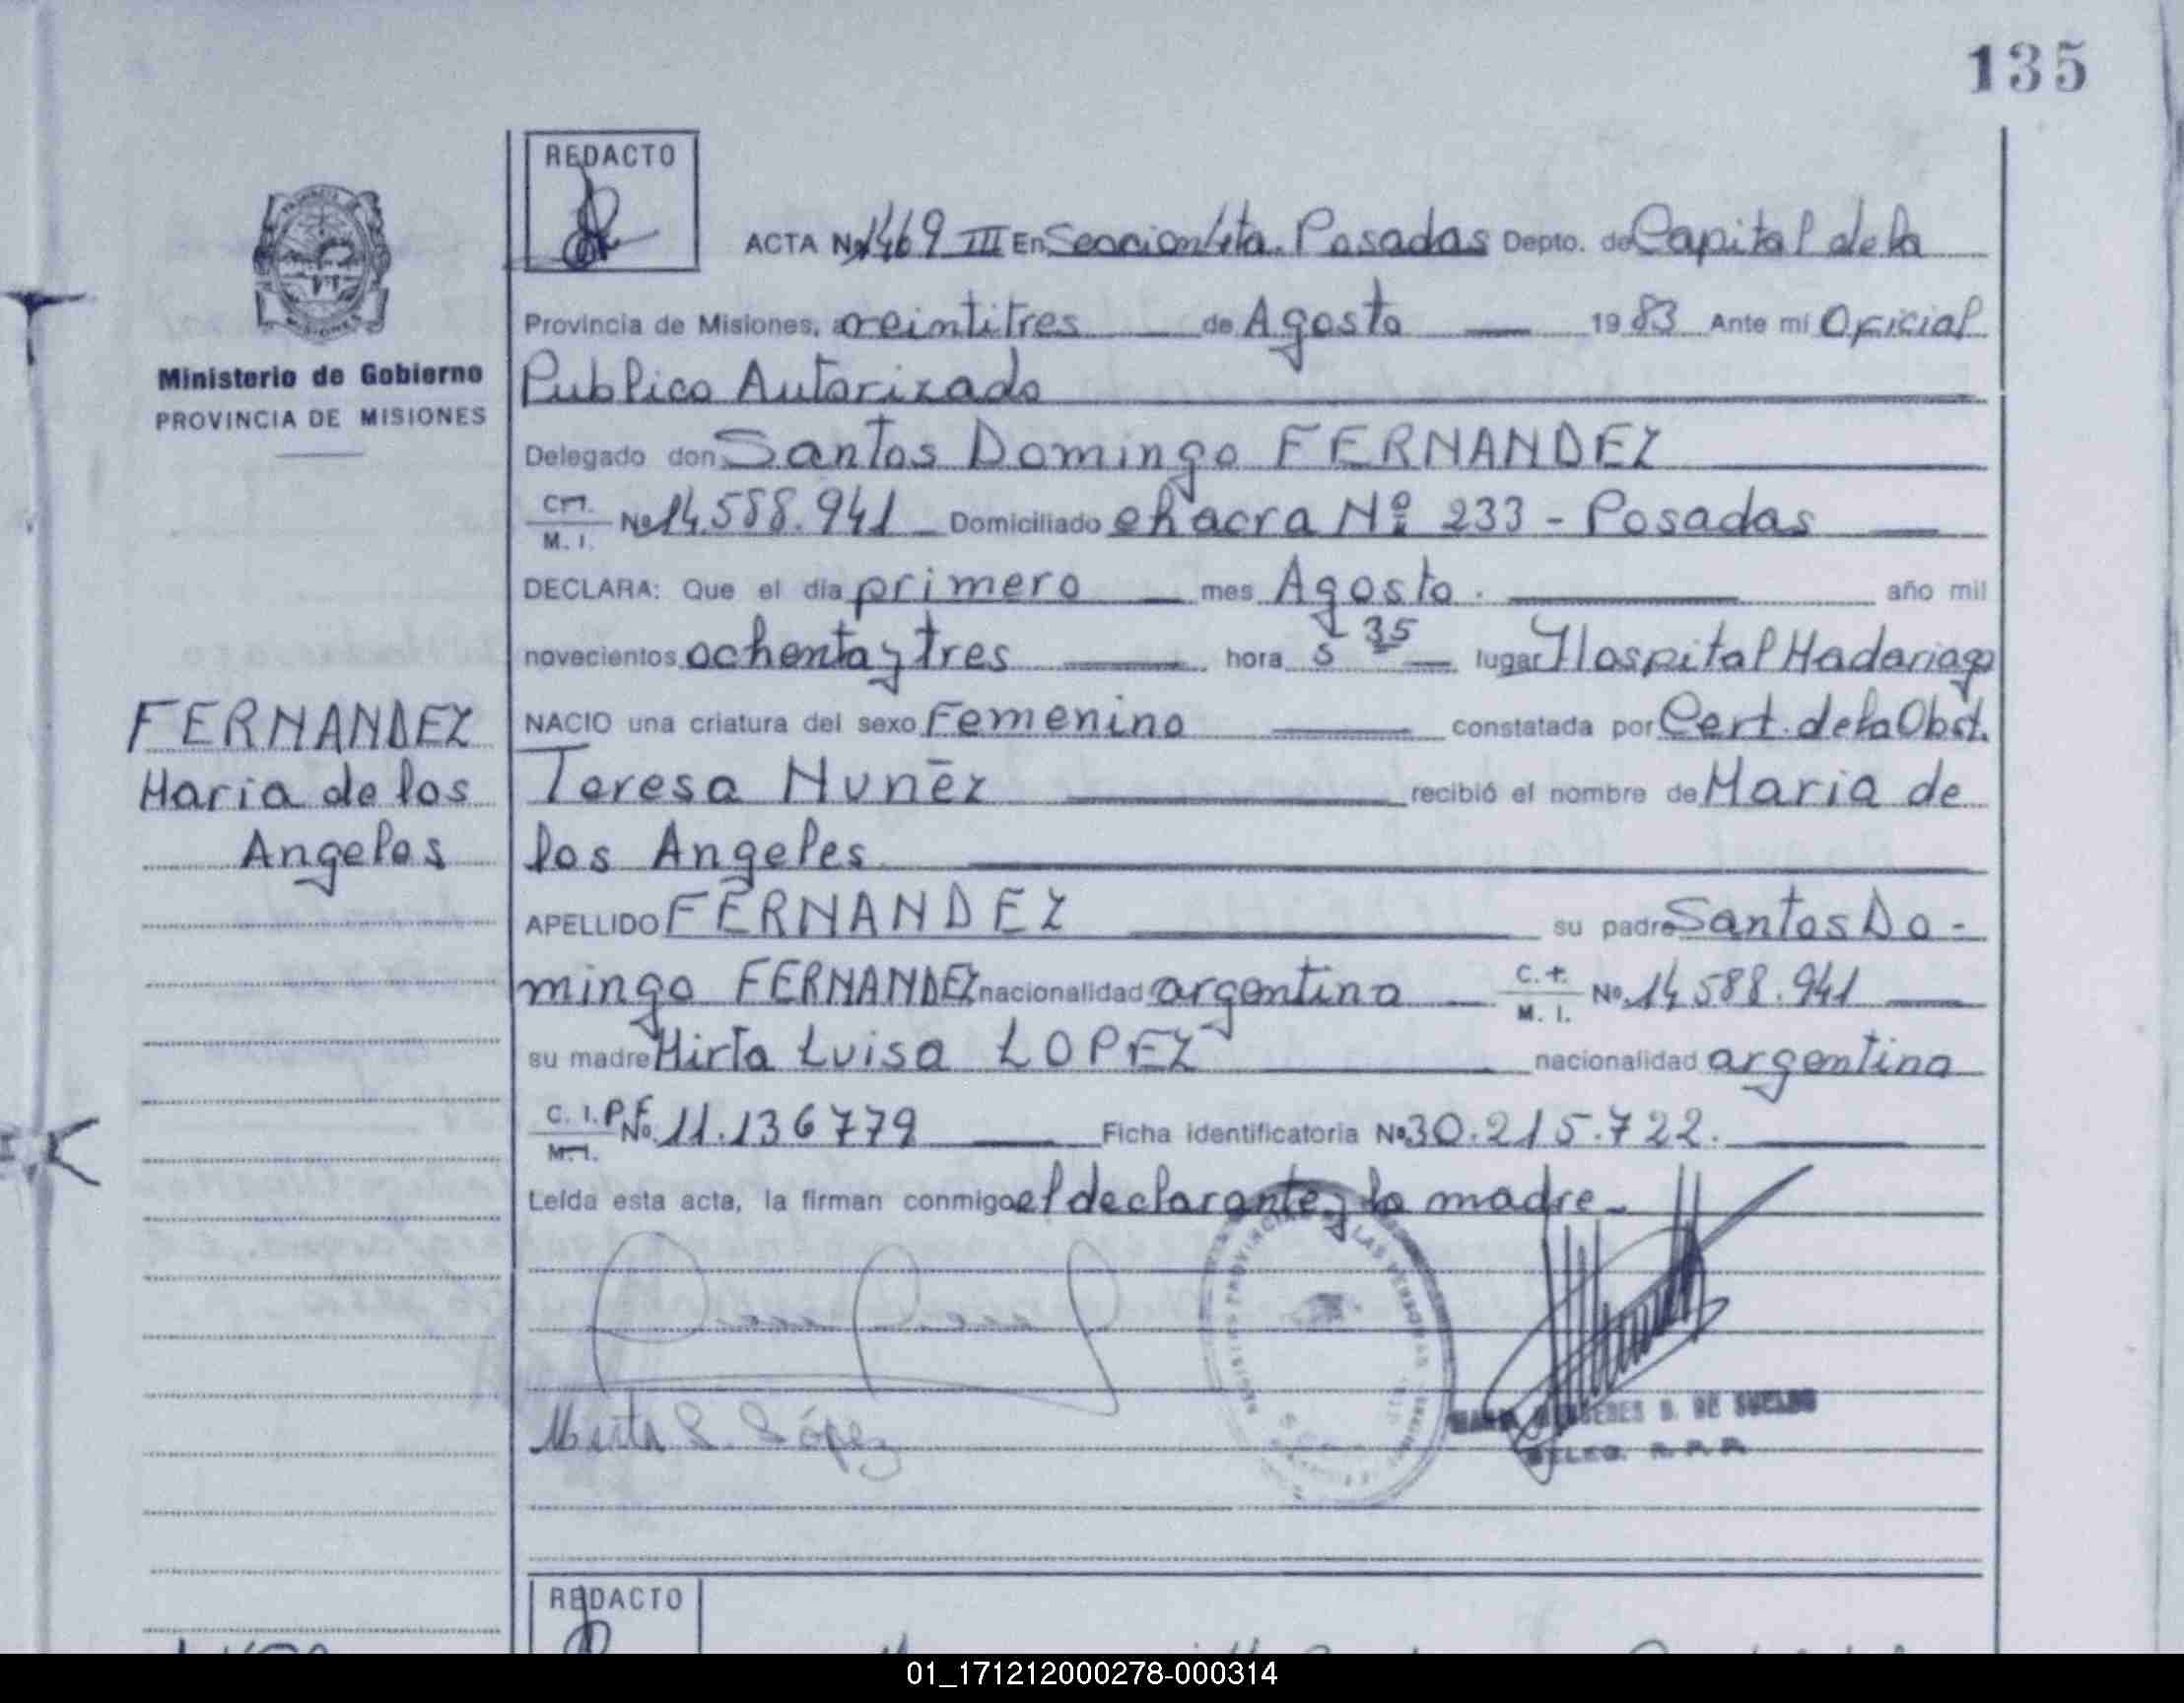 135
REDACTO
ACTA Nº 1469 III En Seccion 4ta. Posadas Depto. de Capital de la
Provincia de Misiones, a veintitres de Agosto 1983 Ante mí Oficial
Publico Autorizado
Ministerio de Gobierno
PROVINCIA DE MISIONES
Delegado don Santos Domingo FERNANDEZ
C.I.
M. I. Nº 14.588.941 Domiciliado chacra Nº 233 - Posadas
DECLARA: Que el día primero mes Agosto. año mil
novecientos ochenta y tres hora 5 35 lugar Hospital Madariaga
NACIO una criatura del sexo Femenino constatada por Cert. de la Obst.
Teresa Nuñez recibió el nombre de Maria de
los Angeles.
FERNANDEZ
Maria de los
Angeles
APELLIDO FERNANDEZ su padre Santos Do-
mingo FERNANDEZ nacionalidad argentina C. I.
M. I. Nº 14.588.941
su madre Mirta Luisa LOPEZ nacionalidad argentina
C. I. P.F.
M. I. Nº 11.136779 Ficha identificatoria Nº 30.215.722.
Leída esta acta, la firman conmigo el declarante y la madre.
Mirta L. López
DELEG. R. P. P.
REDACTO
01_171212000278-000314